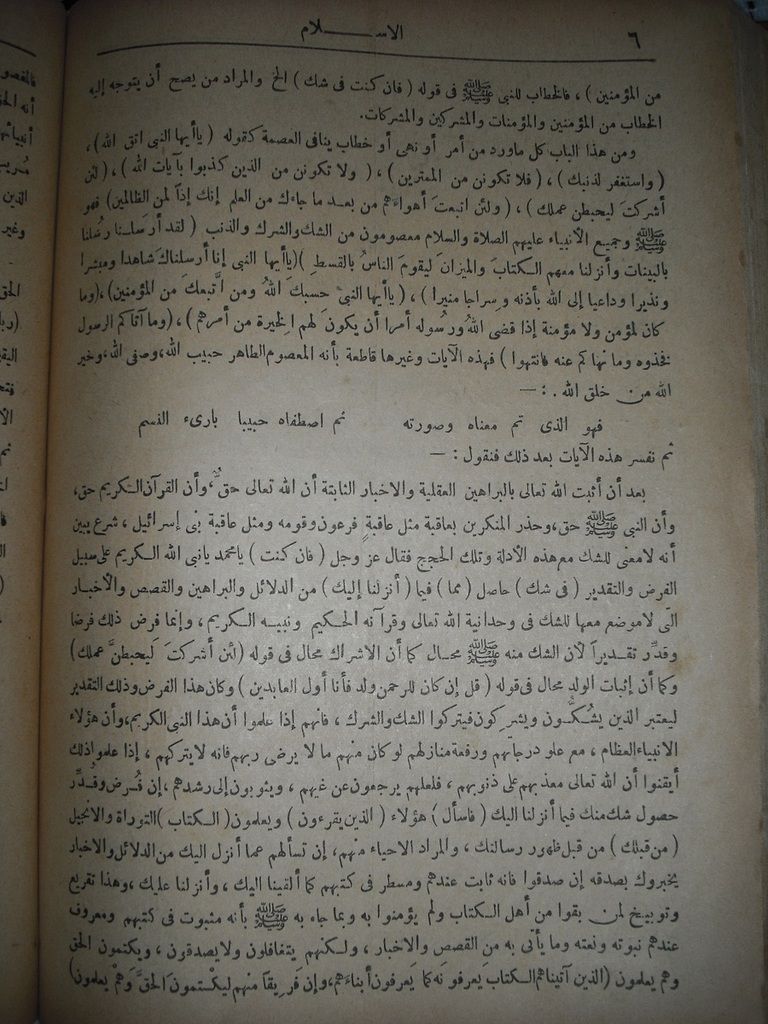 ٦
الاســـلام
من المؤمنين ) ، فالخطاب للنبى ﷺ فى قوله ( فان كنت فى شك ) الخ والمراد من يصح أن يتوجه إليه
الخطاب من المؤمنين والمؤمنات والمشركين والمشركات.
ومن هذا الباب كل ماورد من أمر أو نهى أو خطاب ينافى العصمة كقوله ( ياأيها النبى اتق الله )،
( واستغفر لذنبك ) ، ( فلا تكونن من الممترين ) ، ( ولا تكونن من الذين كذبوا بآيات الله ) ، ( لئن
أشركت ليحبطن عملك ) ، ( ولئن اتبعت أهواءهم من بعد ما جاءك من العلم إنك إذاً لمن الظالمين) فهو
ﷺ وجميع الأنبياء عليهم الصلاة والسلام معصومون من الشك والشرك والذنب ( لقد أرسلنا رسُلنا
بالبينات وأنزلنا معهم الكتابَ والميزانَ ليقومَ الناسُ بالقسطِ ) (ياأيها النبى إنا أرسلناك شاهدا ومبشرا
ونذيرا وداعيا إلى الله بأذنه وسراجا منيرا ) ، ( ياأيها النبىُّ حسبكَ اللهُ ومن اتَّبعكَ من المؤمنين)،(وما
كان لمؤمن ولا مؤمنة إذا قضى اللهُ ورسُوله أمرا أن يكونَ لهم الخيرة من أمرهم ) ، (وما آتاكم الرسول
فخذوه وما نهاكم عنه فانتهوا ) فهذه الآيات وغيرها قاطعة بأنه المعصوم الطاهر حبيب الله، وصفى الله، وخير
الله من خلق الله . : —
فهو الذى تم معناه وصورته ثم اصطفاه حبيبا بارىء النسم
ثم نفسر هذه الآيات بعد ذلك فنقول : —
بعد أن أثبت الله تعالى بالبراهين العقلية والاخبار الثابتة أن الله تعالى حقٌّ ، وأن القرآن الكريم حق،
وأن النبى ﷺ حق، وحذر المنكرين بعاقبة مثل عاقبةِ فرعون وقومه ومثل عاقبة بنى إسرائيل ، شرع يبين
أنه لامعنى للشك مع هذه الأدلة وتلك الحجج فقال عز وجل ( فان كنت ) يامحمد يانبى الله الكريم على سبيل
الفرض والتقدير ( فى شك ) حاصل ( مما ) فيما ( أنزلنا إليك ) من الدلائل والبراهين والقصص والأخبار
التى لاموضع معها للشك فى وحدانية الله تعالى وقرآنه الحكيم ونبيه الكريم ، وإنما فرض ذلك فرضا
وقدِّر تقديراً لأن الشك منه ﷺ محال كما أن الاشراك محال فى قوله (لئن أشركتَ ليحبطنَّ عملك)
وكما أن إثبات الولد محال فى قوله ( قل إن كان للرحمن ولد فأنا أول العابدين ) وكان هذا الفرض وذلك التقدير
ليعتبر الذين يشُكُّون ويشركون فيتركوا الشك والشرك ، فانهم إذا علموا أن هذا النبى الكريم، وأن هؤلاء
الانبياء العظام ، مع علو درجاتهم ورفعة منازلهم لو كان منهم ما لا يرضى ربهم فانه لايتركهم ، إذا علموا ذلك
أيقنوا أن الله تعالى معذبهم على ذنوبهم ، فلعلهم يرجعون عن غيهم ، ويئوبون إلى رشدهم ، إن فُرض وقُدِّر
حصول شك منك فيما أنزلنا اليك ( فاسأل ) هؤلاء ( الذين يقرءون ) ويعلمون ( الكتاب ) التوراة والانجيل
( من قبلك ) من قبل ظهور رسالتك ، والمراد الاحياء منهم، إن تسألهم عما أنزل اليك من الدلائل والاخبار
يخبروك بصدقه إن صدقوا فانه ثابت عندهم ومسطر فى كتبهم كما ألقينا اليك ، وأنزلنا عليك ، وهذا تقريع
وتوبيخ لمن بقوا من أهل الكتاب ولم يؤمنوا به وبما جاء به ﷺ بأنه مثبوت فى كتبهم ومعروف
عندهم نبوته ونعته وما يأتى به من القصص والاخبار ، ولكنهم يتغافلون ولا يصدقون ، ويكتمون الحق
وهم يعلمون (الذين آتيناهم الكتاب يعرفونه كما يَعرفون أبناءَهم، وإن فَريقاً منهم ليكتمون الحقَّ وهُم يعلمون)